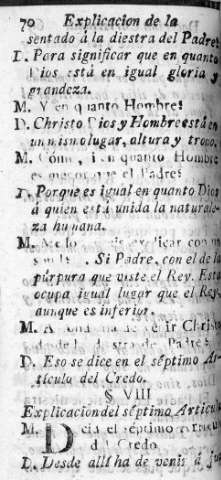 70 Explicacion de la
sentado á la diestra del Padre?
D. Para significar que en quanto
Dios está en igual gloria y
grandeza.
M. Y en quanto Hombre?
D. Christo Dios y Hombre está en
un mismo lugar, altura y trono.
M. Cómo, si en quanto Hombre
es menor que el Padre?
D. Porque es igual en quanto Dios
á quien está unida la naturale-
za humana.
M. explicar con un
. Si Padre, con el de la
púrpura que viste el Rey. Esta
ocupa igual lugar que el Rey,
aunque es inferior.
M. Christo
Padre?
D. Eso se dice en el séptimo Ar-
tículo del Credo.
§ VIII
Explicacion del séptimo Artícul
M. Decid el séptimo
del Credo
D. Desde allí ha de venir á ju